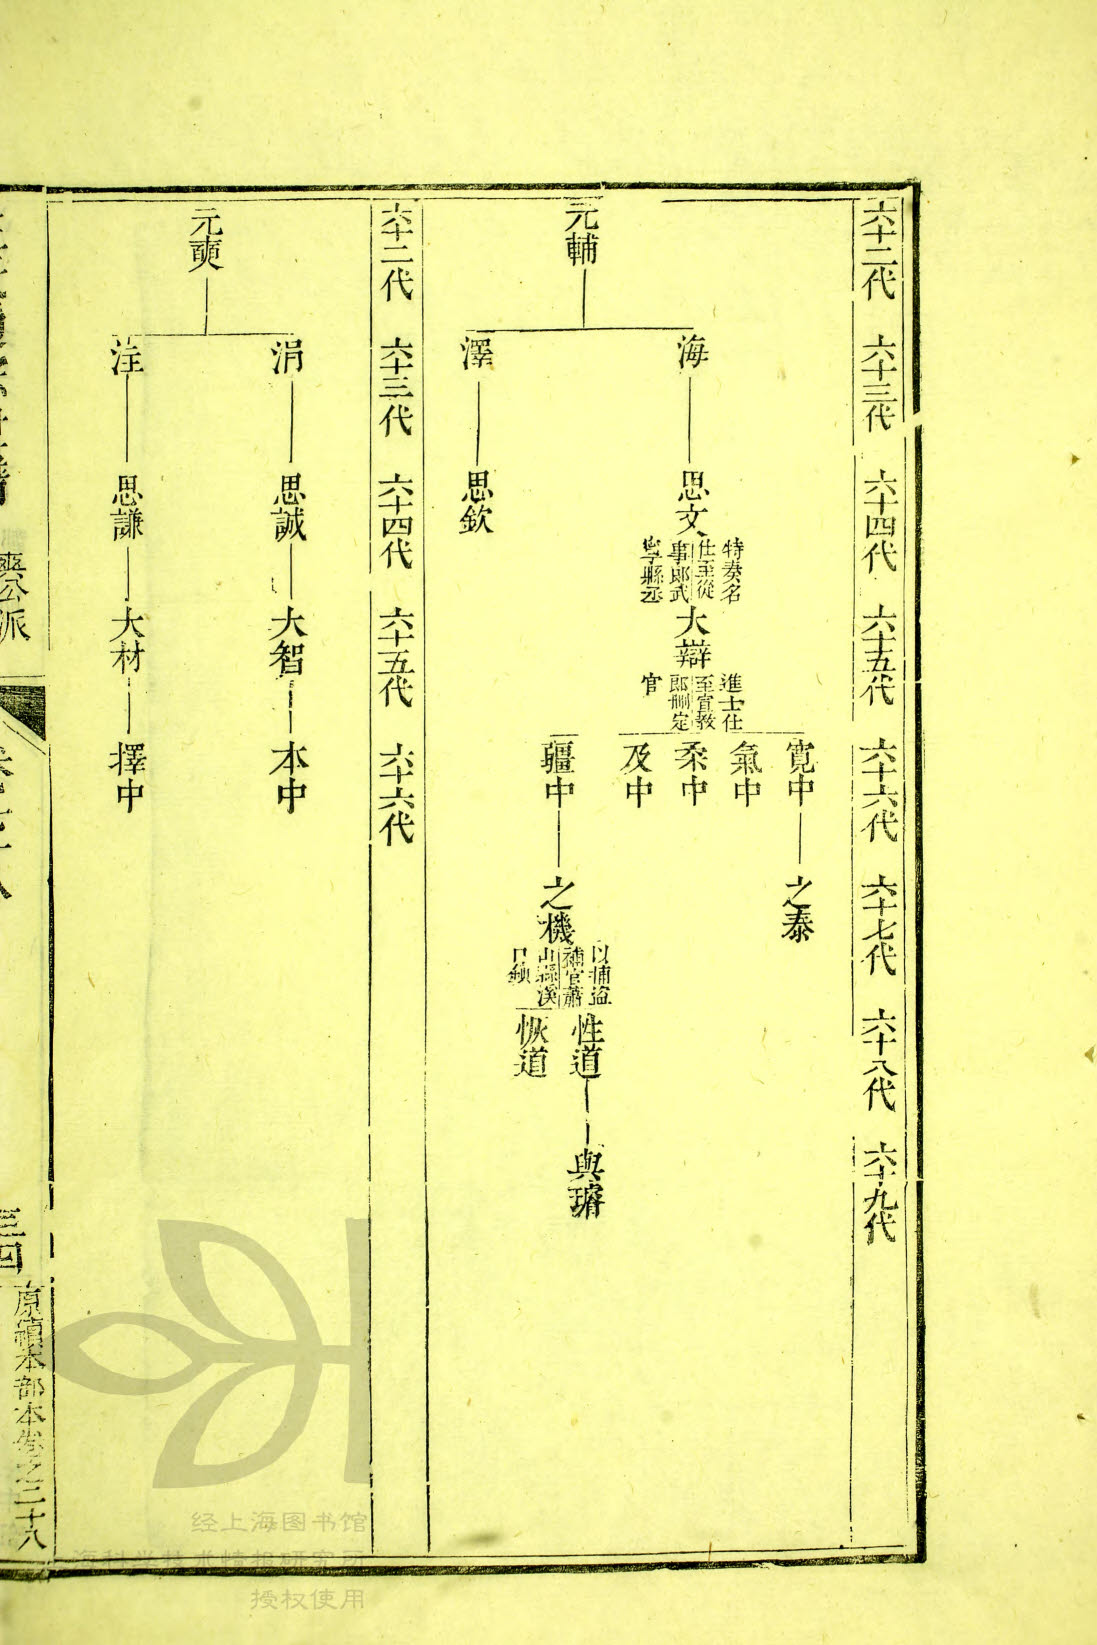 六十二代　六十三代　六十四代　六十五代　六十六代　六十七代　六十八代　六十九代
元輔
海
思文
特奏名
仕至從
事郎武
寧縣丞
大辯
進士仕
至宣教
郎刪定
官
寬中
之泰
氣中
秉中
及中
疆中
之機
以捕盜
補官蕭
山縣漁
口鎮
性道
與瑻
恢道
澤
思欽
六十二代　六十三代　六十四代　六十五代　六十六代
元奭
涓
思誠
大智
本中
注
思謙
大材
擇中
公派
三四
原續本部本卷之二十八
经上海图书馆
授权使用